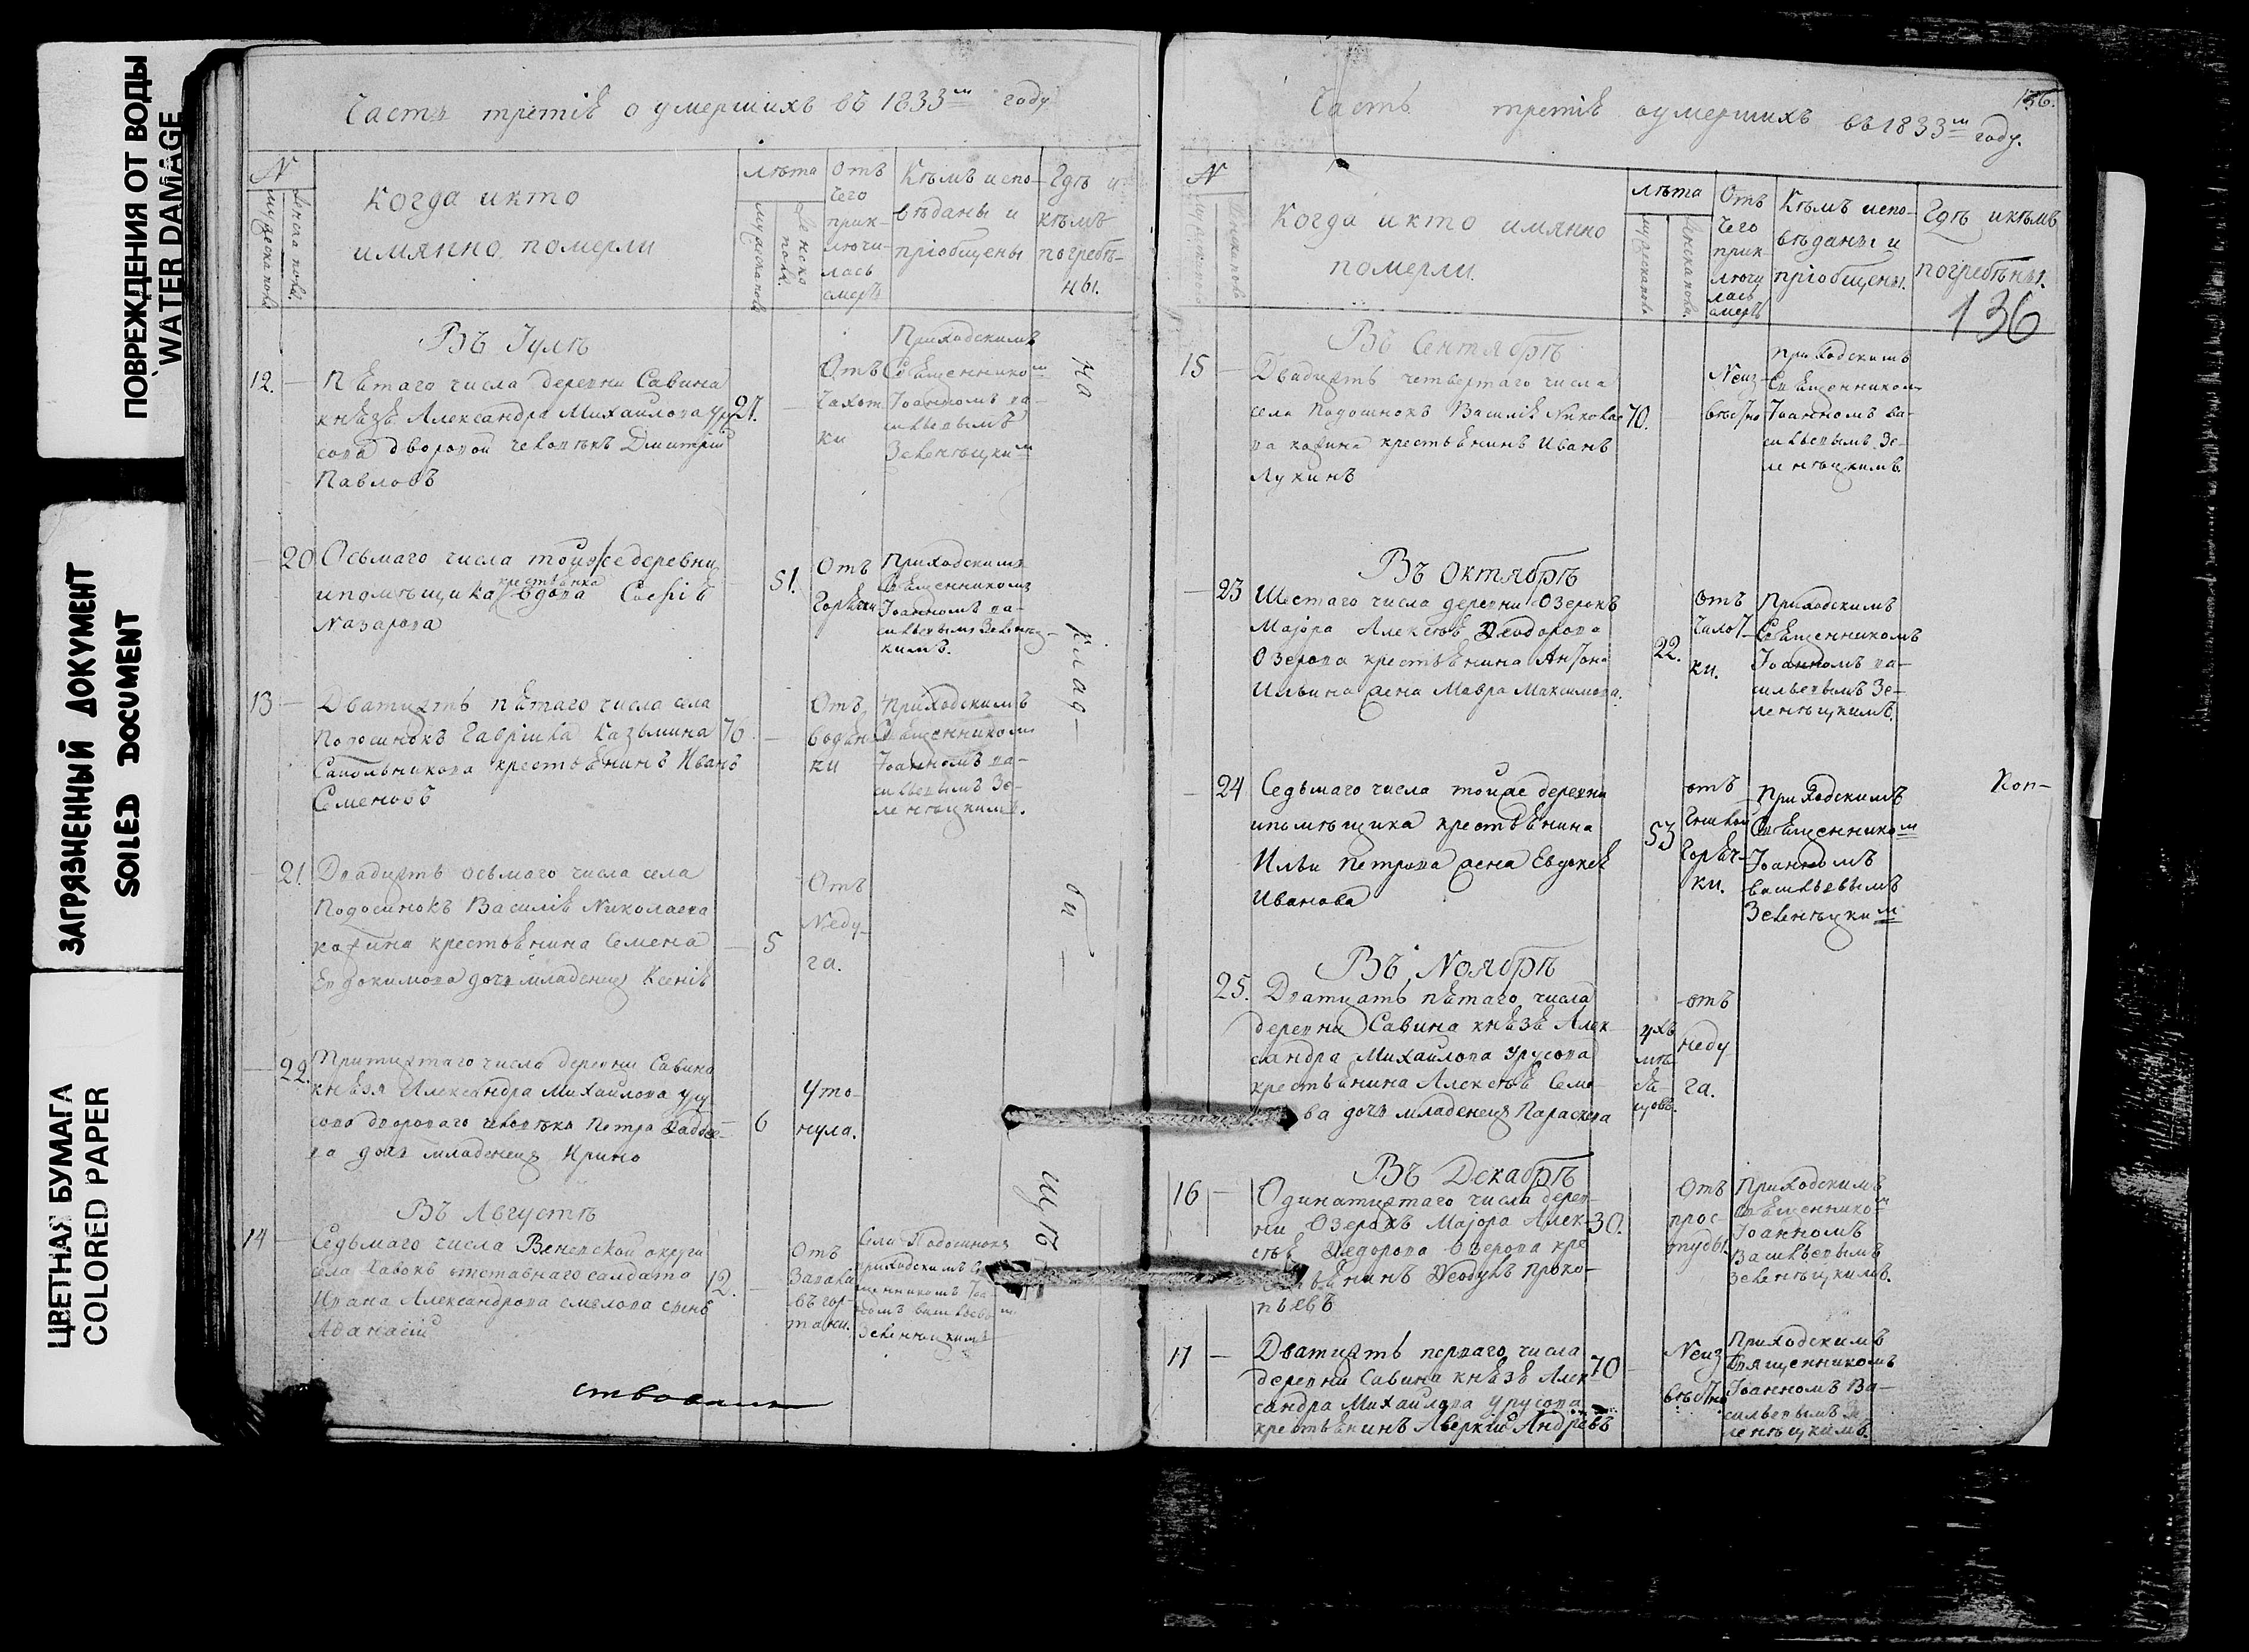 ПОВРЕЖДЕНИЯ ОТ ВОДЫ
WATER DAMAGE
ЗАГРЯЗНЕННЫЙ ДОКУМЕНТ
SOILED DOCUMENT
ЦВЕТНАЯ БУМАГА
COLORED PAPER
Часть третія о умершихъ въ 1833м году
N
мужеска пола
женска пола
Когда и кто
имянно померли
лѣта
мужеска пола
женска пола
Отъ
чего
прик-
лючи-
лась
смерть
Кѣмъ испо-
вѣданы и
пріобщены
Гдѣ и
кѣмъ
погребе-
ны.
Въ Іулѣ
12. — Пятаго числа деревни Савина
князя Александра Михаилова Уру
сова дворовой человѣкъ Дмитрій
Павловъ
27.
Отъ
чахот
ки
Приходскимъ
Священником
Іоанномъ ва-
сильевымъ
Зеленѣцким
— 20 Осьмаго числа тойже деревни
ипомѣщика крестьянка вдова Софія
Назарова
51.
Отъ
горячки
Приходскимъ
Священникомъ
Іоанномъ ва-
сильевымъ Зеленѣц-
кимъ.
13 — Дватцать пятаго числа села
Подосинокъ Гавріила Казьмина
Сапольникова крестьянинъ Иванъ
Семеновъ
76
Отъ
водян
ки
Приходскимъ
Священником
Іоанномъ ва-
сильевымъ Зе-
ленѣцкимъ.
— 21. Двадцать осьмаго числа села
Подосинокъ Василія Николаева
крестьянина Семена
Евдокимова дочь младенец Ксенія
5
Отъ
Неду-
га.
— 22. Тритцатаго числа деревни Савина
князя Александра Михаилова Уру
сова двороваго человѣка Петра
ва дочь младенец Ирина
6
Уто-
нула.
Въ Августѣ
14 — Седьмаго числа Веневской округи
села Хавокъ отставнаго салдата
Ивана Александрова смелова сынъ
Афанасій
12.
Отъ
Завала
въ гор-
тани.
Села Подосинокъ
приходскимъ Свя
щенникомъ Іоа-
номъ васильевы м
Зеленѣцкимъ
На
клад-
би-
щѣ
ствовалъ
Часть третія о умершихъ въ 1833м году.
136.
N
мужеска пола
женска пола
Когда и кто имянно
померли.
лѣта
мужеска пола
женска пола
Отъ
чего
прик-
лючи
лась
смерть
Кѣмъ испо-
вѣданы и
пріобщены.
Гдѣ и кѣмъ
погребены.
136
Въ Сентябрѣ
15 — Двадцать четвертаго числа
села Подосинокъ Василія Николае
ва крестьянинъ Иванъ
Лукинъ
70.
Неиз-
вѣстно
Приходскимъ
Священником
Іоанномъ ва-
сильевымъ Зе-
ленѣцкимъ.
Въ Октябрѣ
— 23 Шестаго числа деревни Озерокъ
Маіора Алексѣя Ѳеодорова
Озерова крестьянина Антона
Ильина жена Мавра Максимова.
22.
отъ
чахот-
ки.
Приходскимъ
Священникомъ
Іоанномъ ва-
сильевымъ Зе-
ленѣцкимъ.
— 24 Седьмаго числа тойже деревни
ипомѣщика крестьянина
Ильи Петрова жена Евдокея
Иванова
53
отъ
гнилой
горяч-
ки.
приходскимъ
Священником
Іоанномъ
васильевымъ
Зеленѣцким
Коп-
Въ Ноябрѣ
25. Дватцать пятаго числа
деревни Савина князя Алек
сандра Михаилова Урусова
крестьянина Алексѣя Семе
ва дочь младенец Парасчева
4хъ
мѣ
ся-
цовъ.
отъ
неду
га.
Въ Декабрѣ
16 — Одинатцатаго числа дерев-
ни Озерокъ Маіора Алек-
сѣя Ѳедорова Озерова кре
янинъ Ѳеодулъ Проко-
пьевъ
30.
Отъ
прос-
туды.
Приходскимъ
Священником
Іоанномъ
Васильевымъ
Зеленѣцкимъ.
17 — Дватцать перваго числа
деревни Савина князя Алек
сандра Михаилова Урусова
крестьянинъ Аверкій Андрѣевъ
70
Неиз-
вѣстно
Приходскимъ
Священникомъ
Іоанномъ Ва-
сильевымъ Зе
ленѣцкимъ.